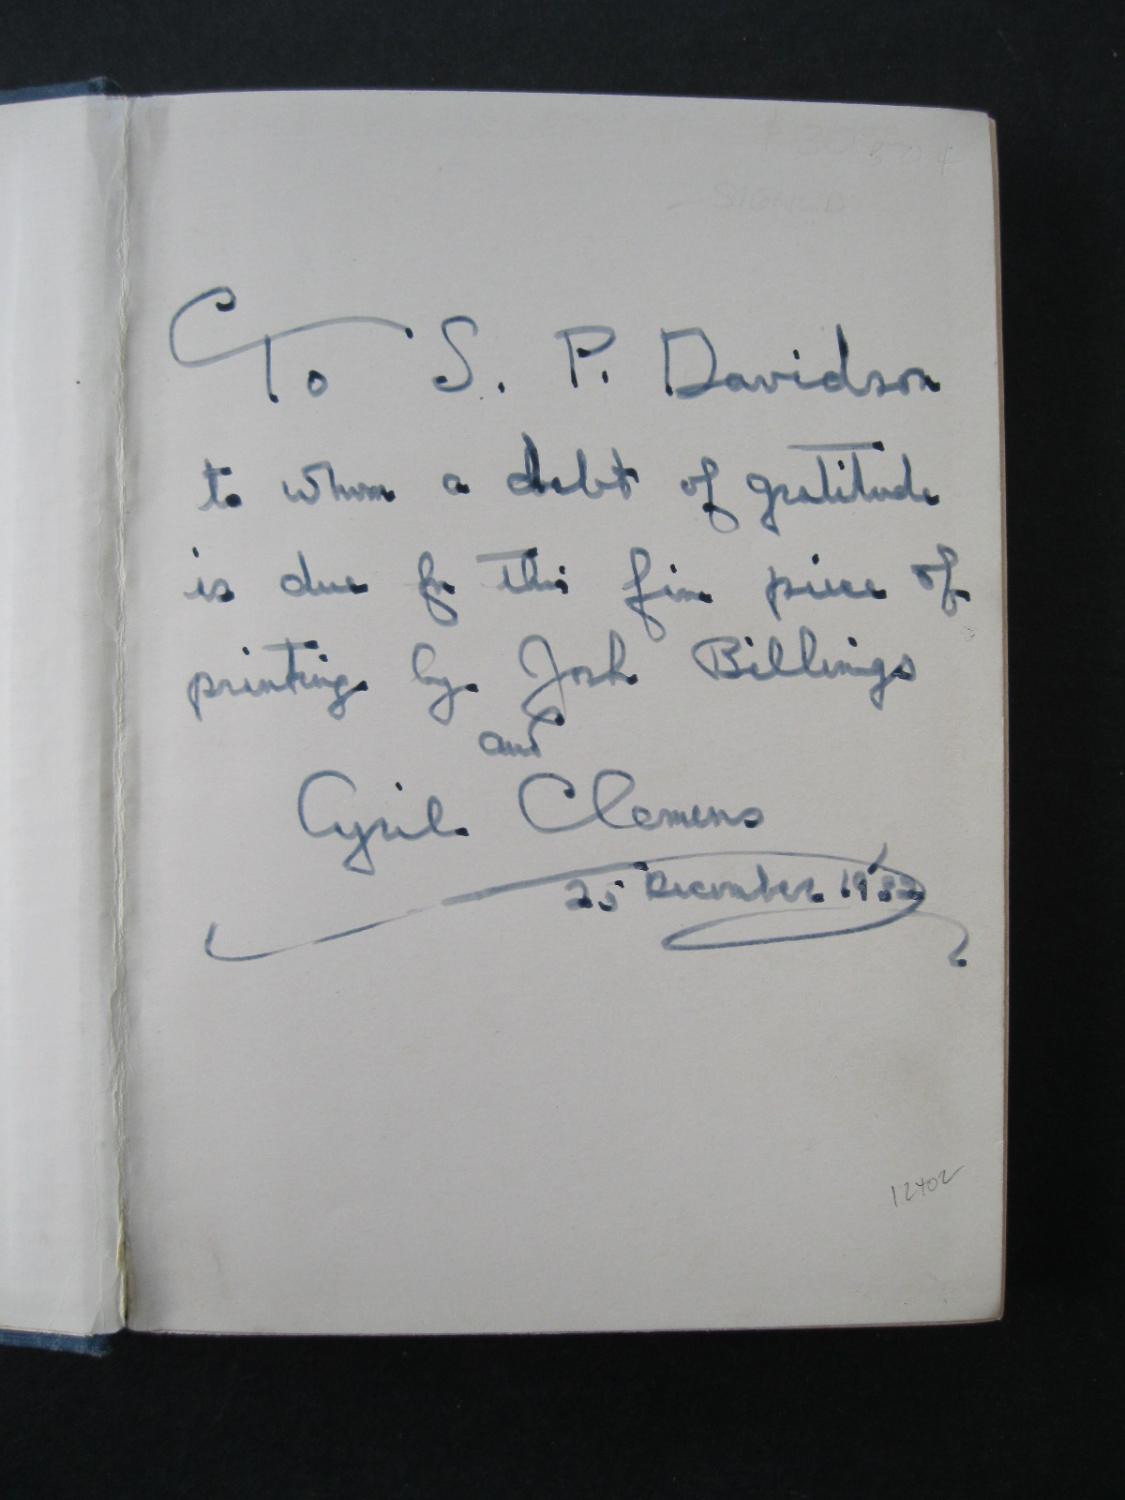 SIGNED
To S. P. Davidson
to whom a debt of gratitude
is due for this fine piece of
printing by Josh Billings
and
Cyril Clemens
25 December 1932
12402